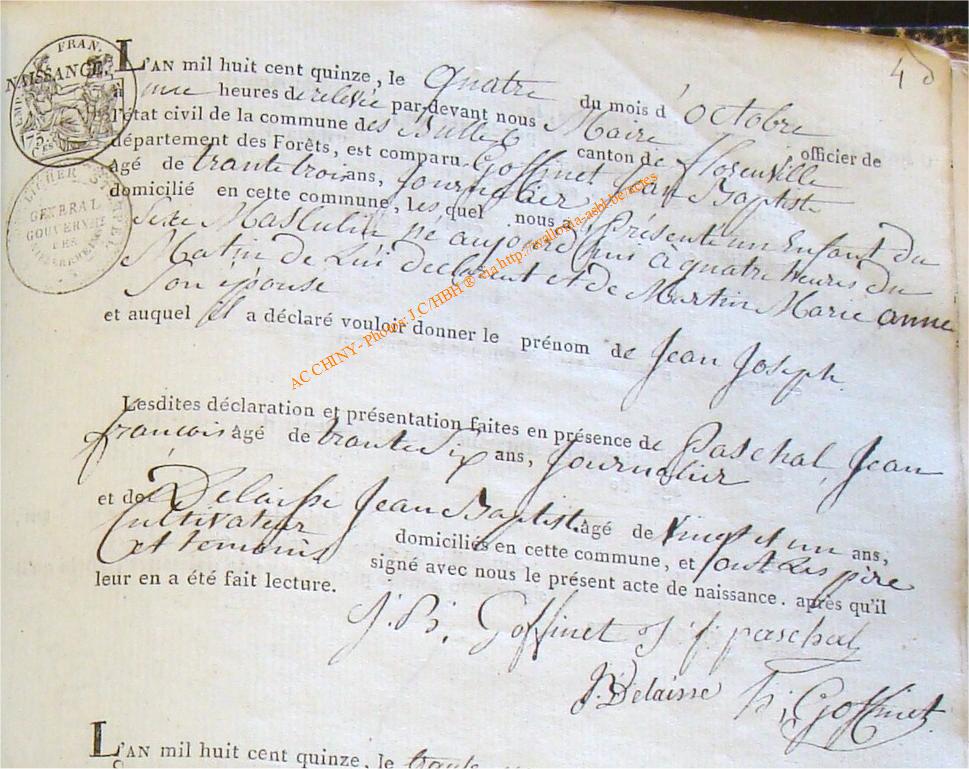 4
FRAN.
NAISSANCE.
GENERAL
GOUVERNT
DES
L'AN mil huit cent quinze, le quatre du mois d'octobre
à une heures de relevée par-devant nous Maire officier de
l'état civil de la commune des Bulles canton de florenville
département des Forêts, est comparu Goffinet Jean Baptiste
âgé de trante trois ans, Journalier
domicilié en cette commune, lesquel nous a présenté un Enfant du
Sexe Masculin né aujourdhuis a quatre heures du
Matin de Lui declarant et de Martin Marie anne
Son épouse
et auquel il a déclaré vouloir donner le prénom de Jean Joseph.
AC CHINY - Photos J.C/HBH ® via http://wallonia-asbl.be/actes
Lesdites déclaration et présentation faites en présence de Paschal, Jean
francois âgé de trante Six ans, Journalier
et de Delaisse Jean Baptist. âgé de vingt et un ans,
Cultivateur domiciliés en cette commune, et ont Les père
et temoins signé avec nous le présent acte de naissance. après qu'il
leur en a été fait lecture.
J. B. Goffinet J. f. paschal
J. Delaisse h. Goffinet
L'AN mil huit cent quinze, le trante